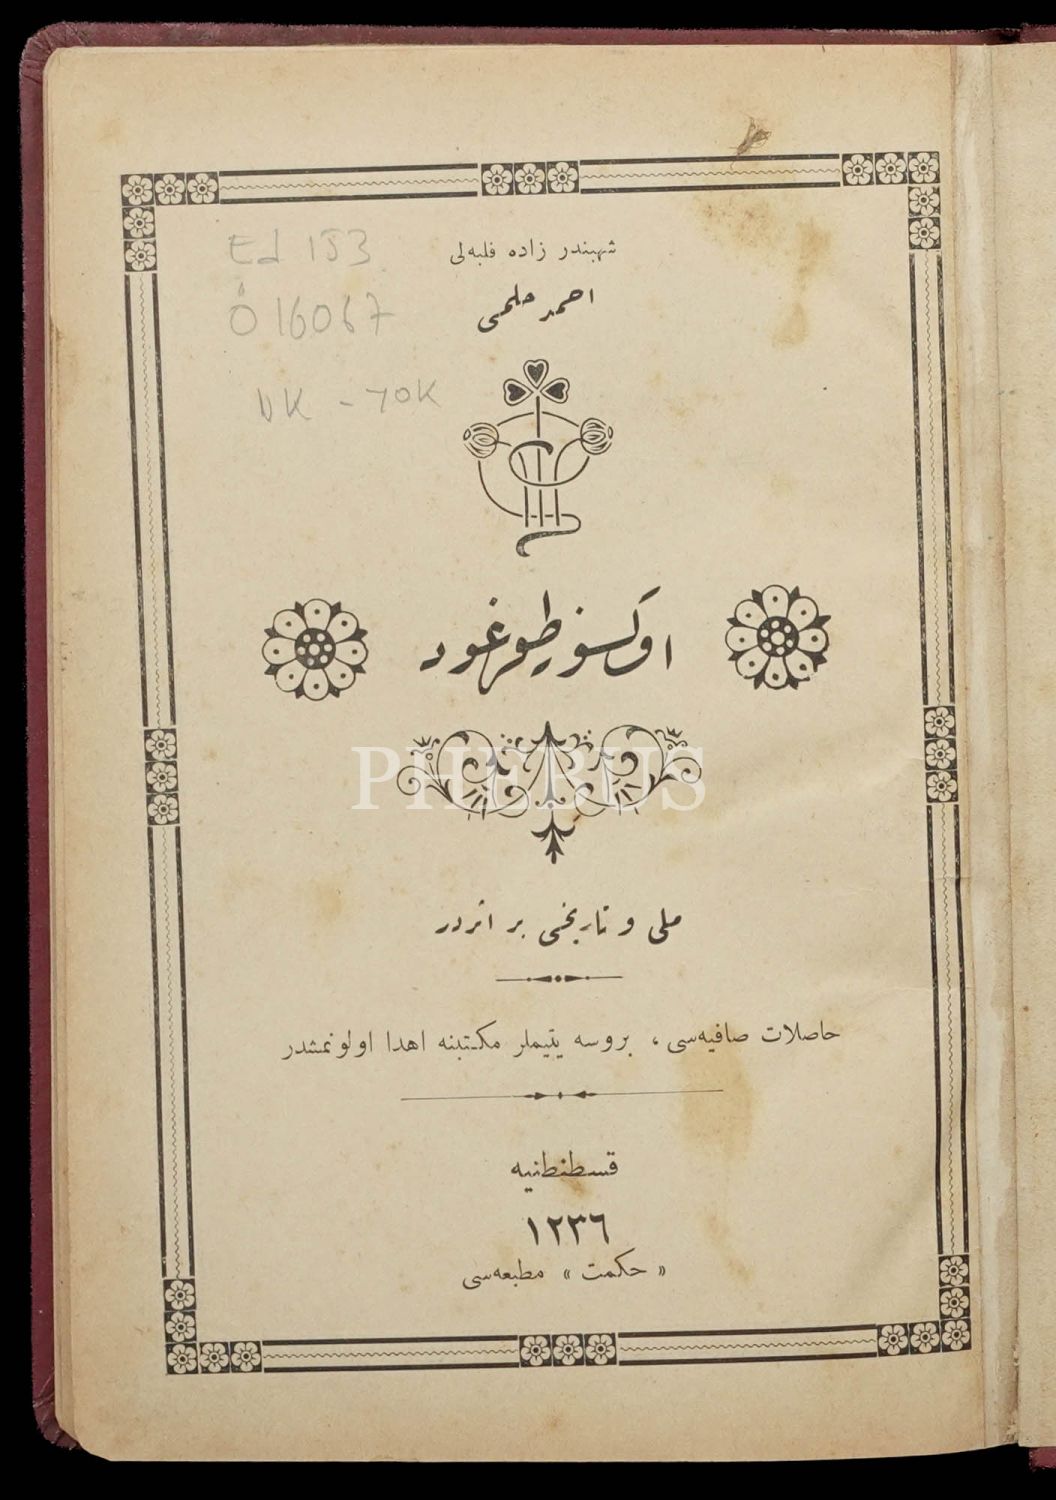 شهبندر زاده فلبه‌لی
احمد حلمی
Ed 153
Ö 16067
اوكسوز طورغود
PHEBUS
ملی و تاریخی بر اثردر
حاصلات صافیه‌سی ، بروسه یتیملر مکتبنه اهدا اولونمشدر
قسطنطنیه
١٢٣٦
« حکمت » مطبعه‌سی